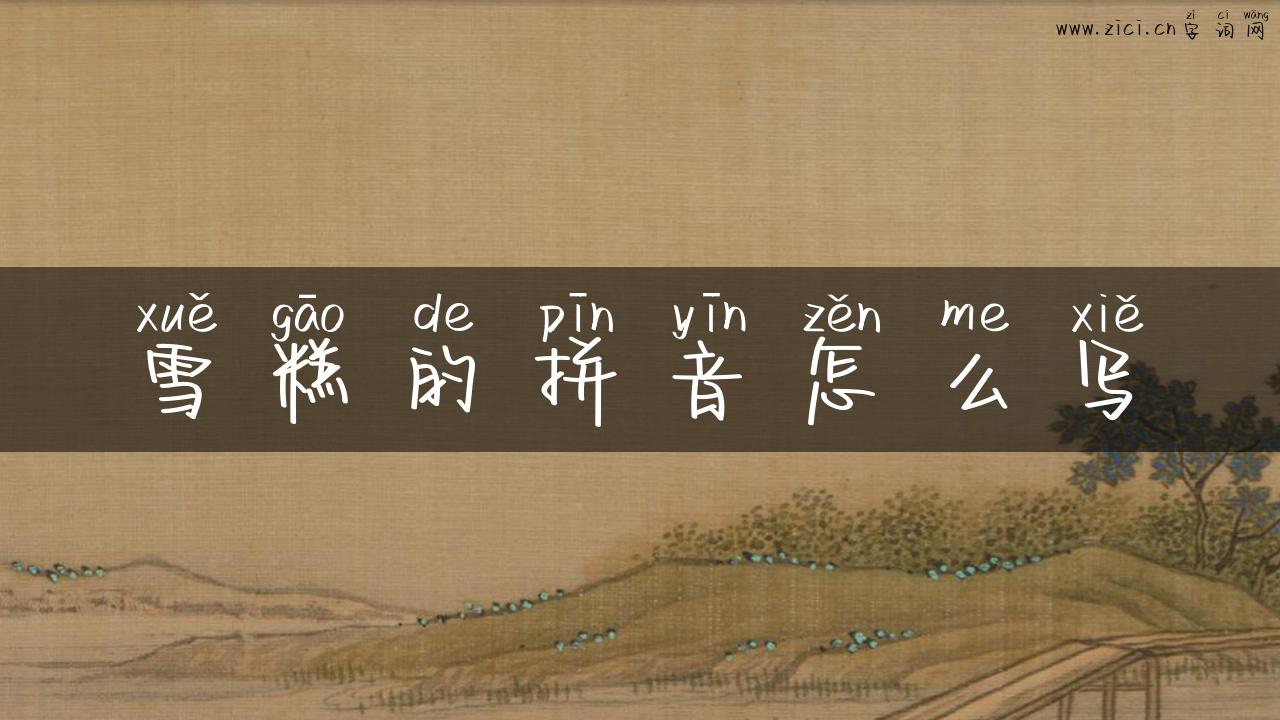 zì cí wǎng
www.zici.cn 字词网
xuě gāo de pīn yīn zěn me xiě
雪糕的拼音怎么写